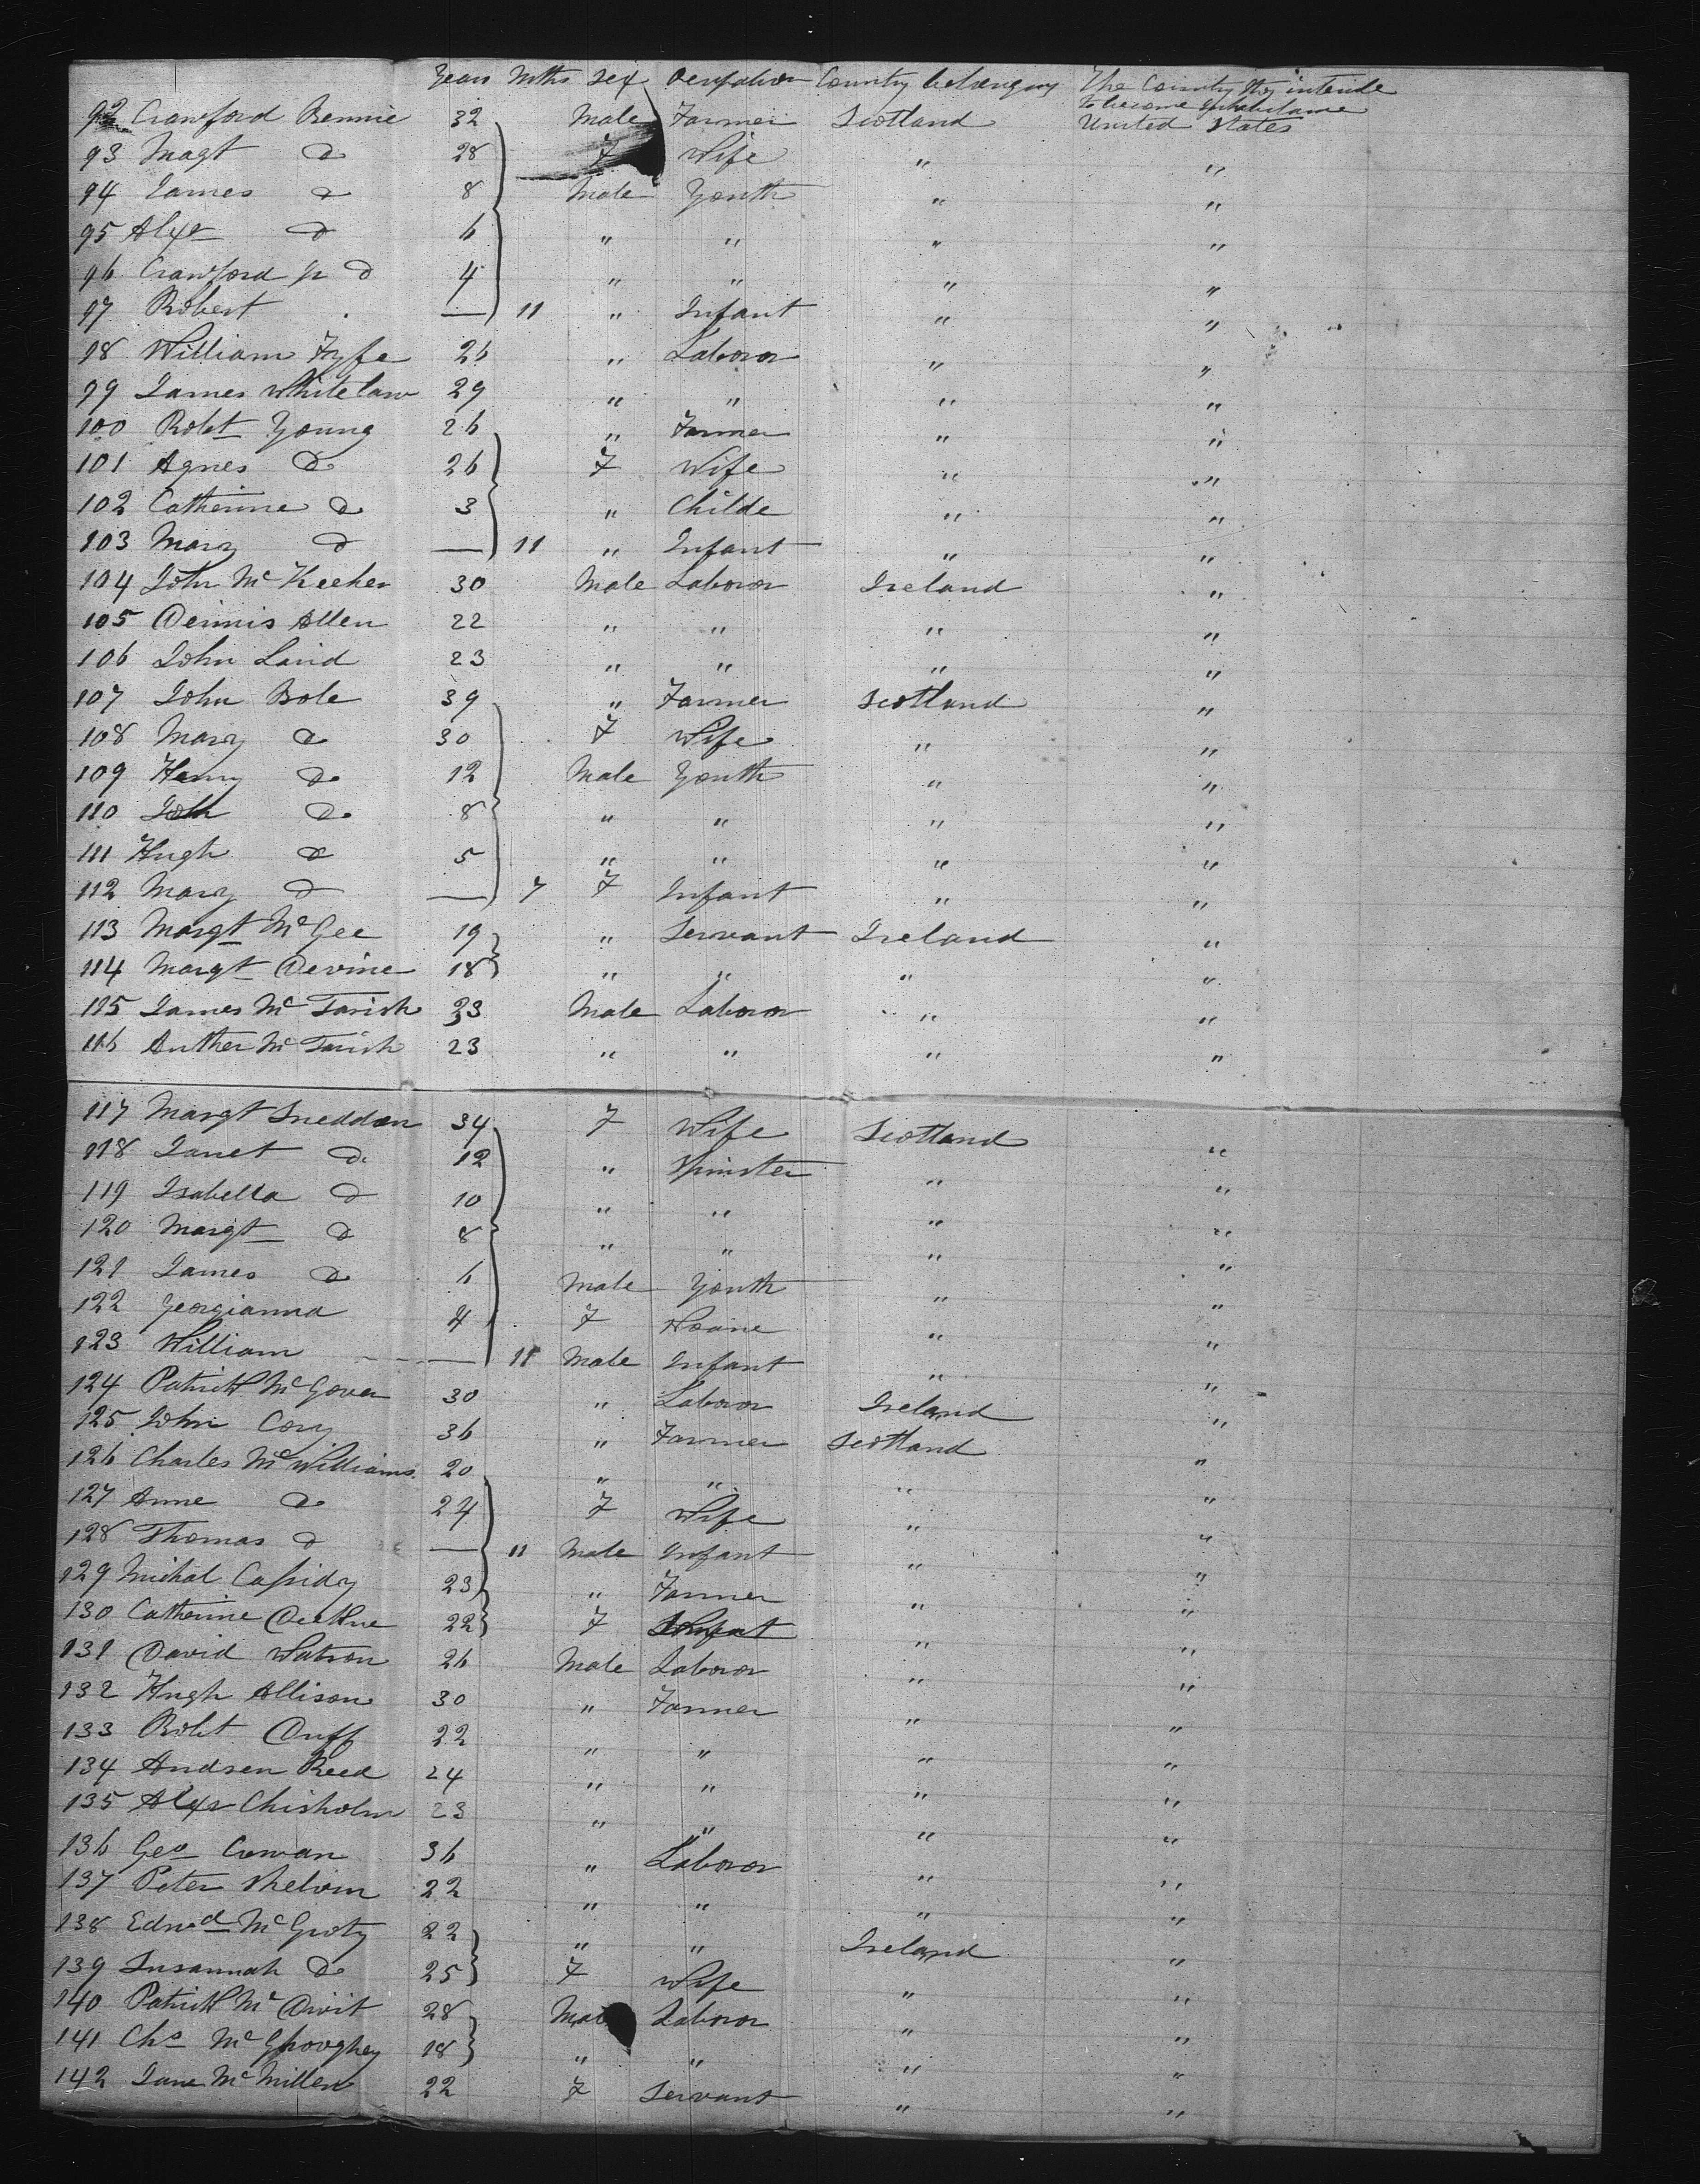 Years Mths Sex Occupation Country belonging The Country they intende
to become Inhabitance
92 Crawford Rennie 32 Male Farmer Scotland United States
93 Magt do 28 F Wife " "
94 James do 8 Male Youth " "
95 Alexr do 6 " " " "
96 Crawford Jr do 4 " " " "
97 Robert — 11 " Infant " "
98 William Fyfe 26 " Laboror " "
99 James Whitelaw 29 " " " "
100 Robt Young 26 " Farmer " "
101 Agnes do 26 F Wife " "
102 Catherine do 3 " Childe " "
103 Mary do — 11 " Infant " "
104 John Mc Keeher 30 Male Laboror Ireland "
105 Dennis Allen 22 " " " "
106 John Laird 23 " " " "
107 John Bole 39 " Farmer Scotland "
108 Mary do 30 F Wife " "
109 Henry do 12 Male Youth " "
110 John do 8 " " " "
111 Hugh do 5 " " " "
112 Mary do — 7 F Infant " "
113 Margt McGee 19 " Servant Ireland "
114 Margt Devine 18 " " " "
115 James Mc Tarish 23 Male Laboror " "
116 Auther Mc Tarish 23 " " " "
117 Margt Sneddon 34 F Wife Scotland "
118 Janet do 12 " Spinster " "
119 Isabella do 10 " " " "
120 Margt do 8 " " " "
121 James do 6 Male Youth " "
122 Georgianna 4 F Noane " "
123 William — 11 Male Infant " "
124 Patrick McGover 30 " Laboror Ireland "
125 John Cory 36 " Farmer Scotland "
126 Charles McWilliams 20 " " " "
127 Anne do 24 F Wife " "
128 Thomas do — 11 Male Infant " "
129 Michal Cassidy 23 " Farmer " "
130 Catherine 22 F " "
131 David Watson 26 Male Laboror " "
132 Hugh Allison 30 " Farmer " "
133 Robt Duff 22 " " " "
134 Andrew Reed 24 " " " "
135 Alexr Chisholm 23 " " " "
136 Geo Cowan 36 " Laboror " "
137 Peter 22 " " " "
138 Edwd McGroty 22 " " Ireland "
139 Susannah do 25 F Wife " "
140 Patrick Mc Divit 28 Male Laboror " "
141 Chs 18 " " " "
142 Jane McMillen 22 F Servant " "